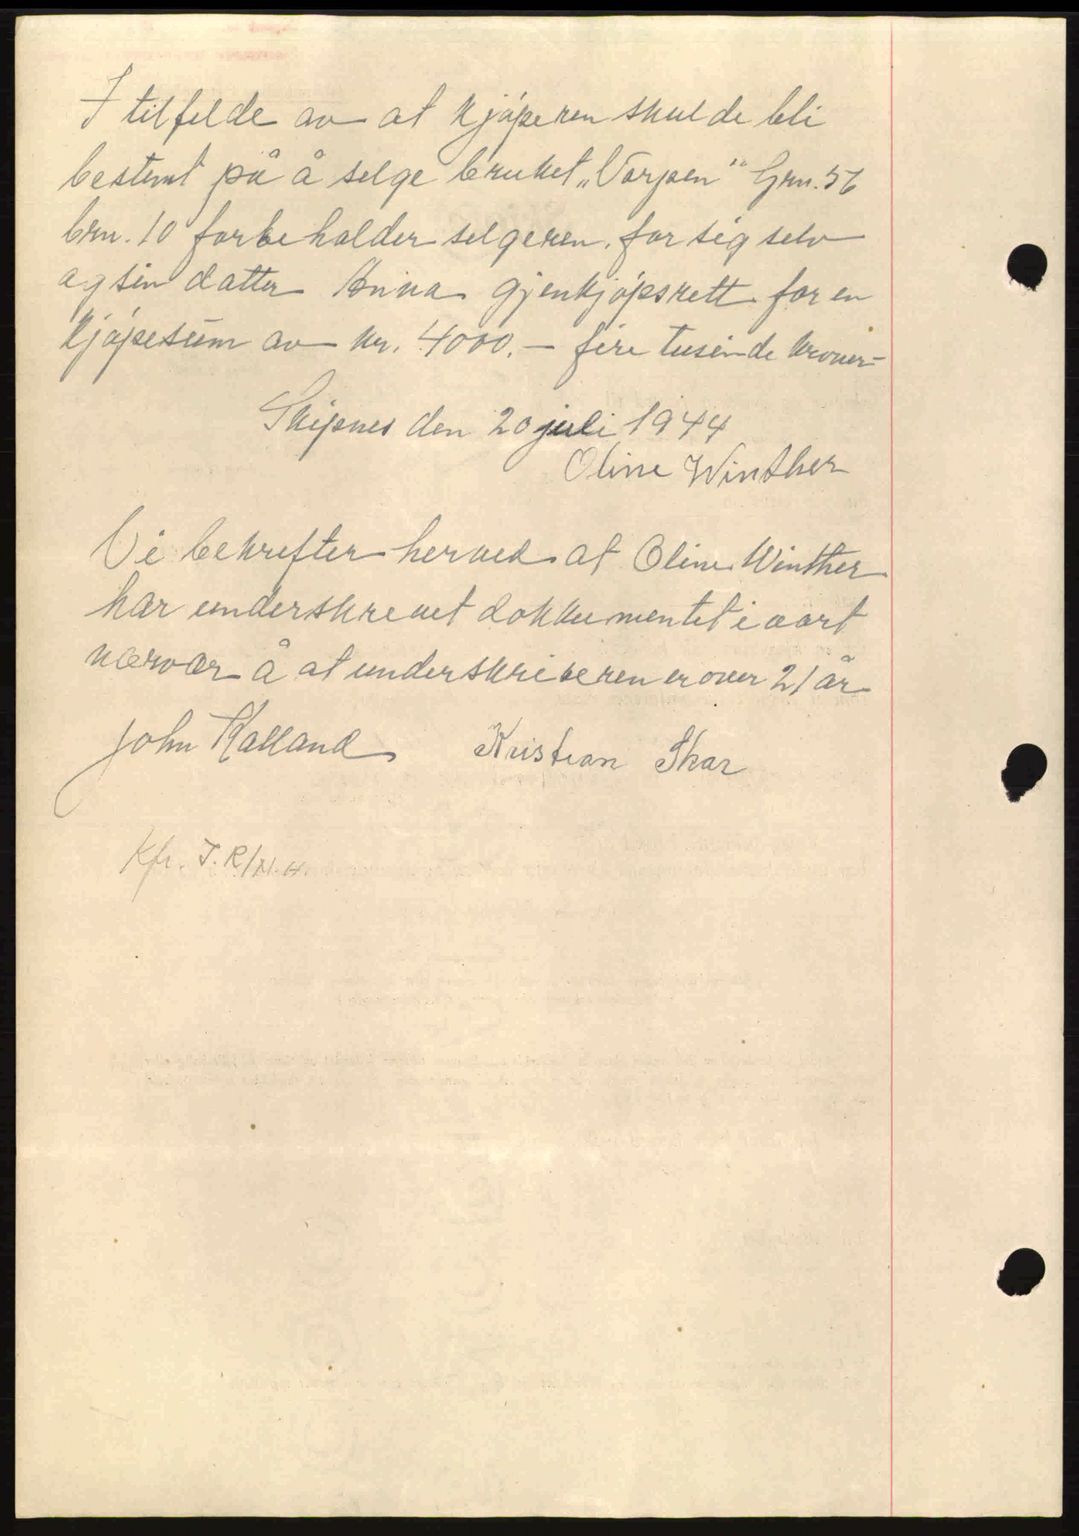 I tilfelde av at kjøperen skulde bli
bestemt på å selge bruket „Varpen" Grn. 56
brn. 10 forbeholder selgeren, for sig selv
og sin datter Anna gjenkjøpsrett for en
kjøpesum av kr. 4000.— fire tusinde kroner—
Skipnes den 20 juli 1944
Oline Winther
Vi bekrefter herved at Oline Winther
har underskrevet dokkumentet i vort
nærvær å at underskriveren er over 21 år
John Kalland Kristian Skar
Kfr. T.R/N.H.